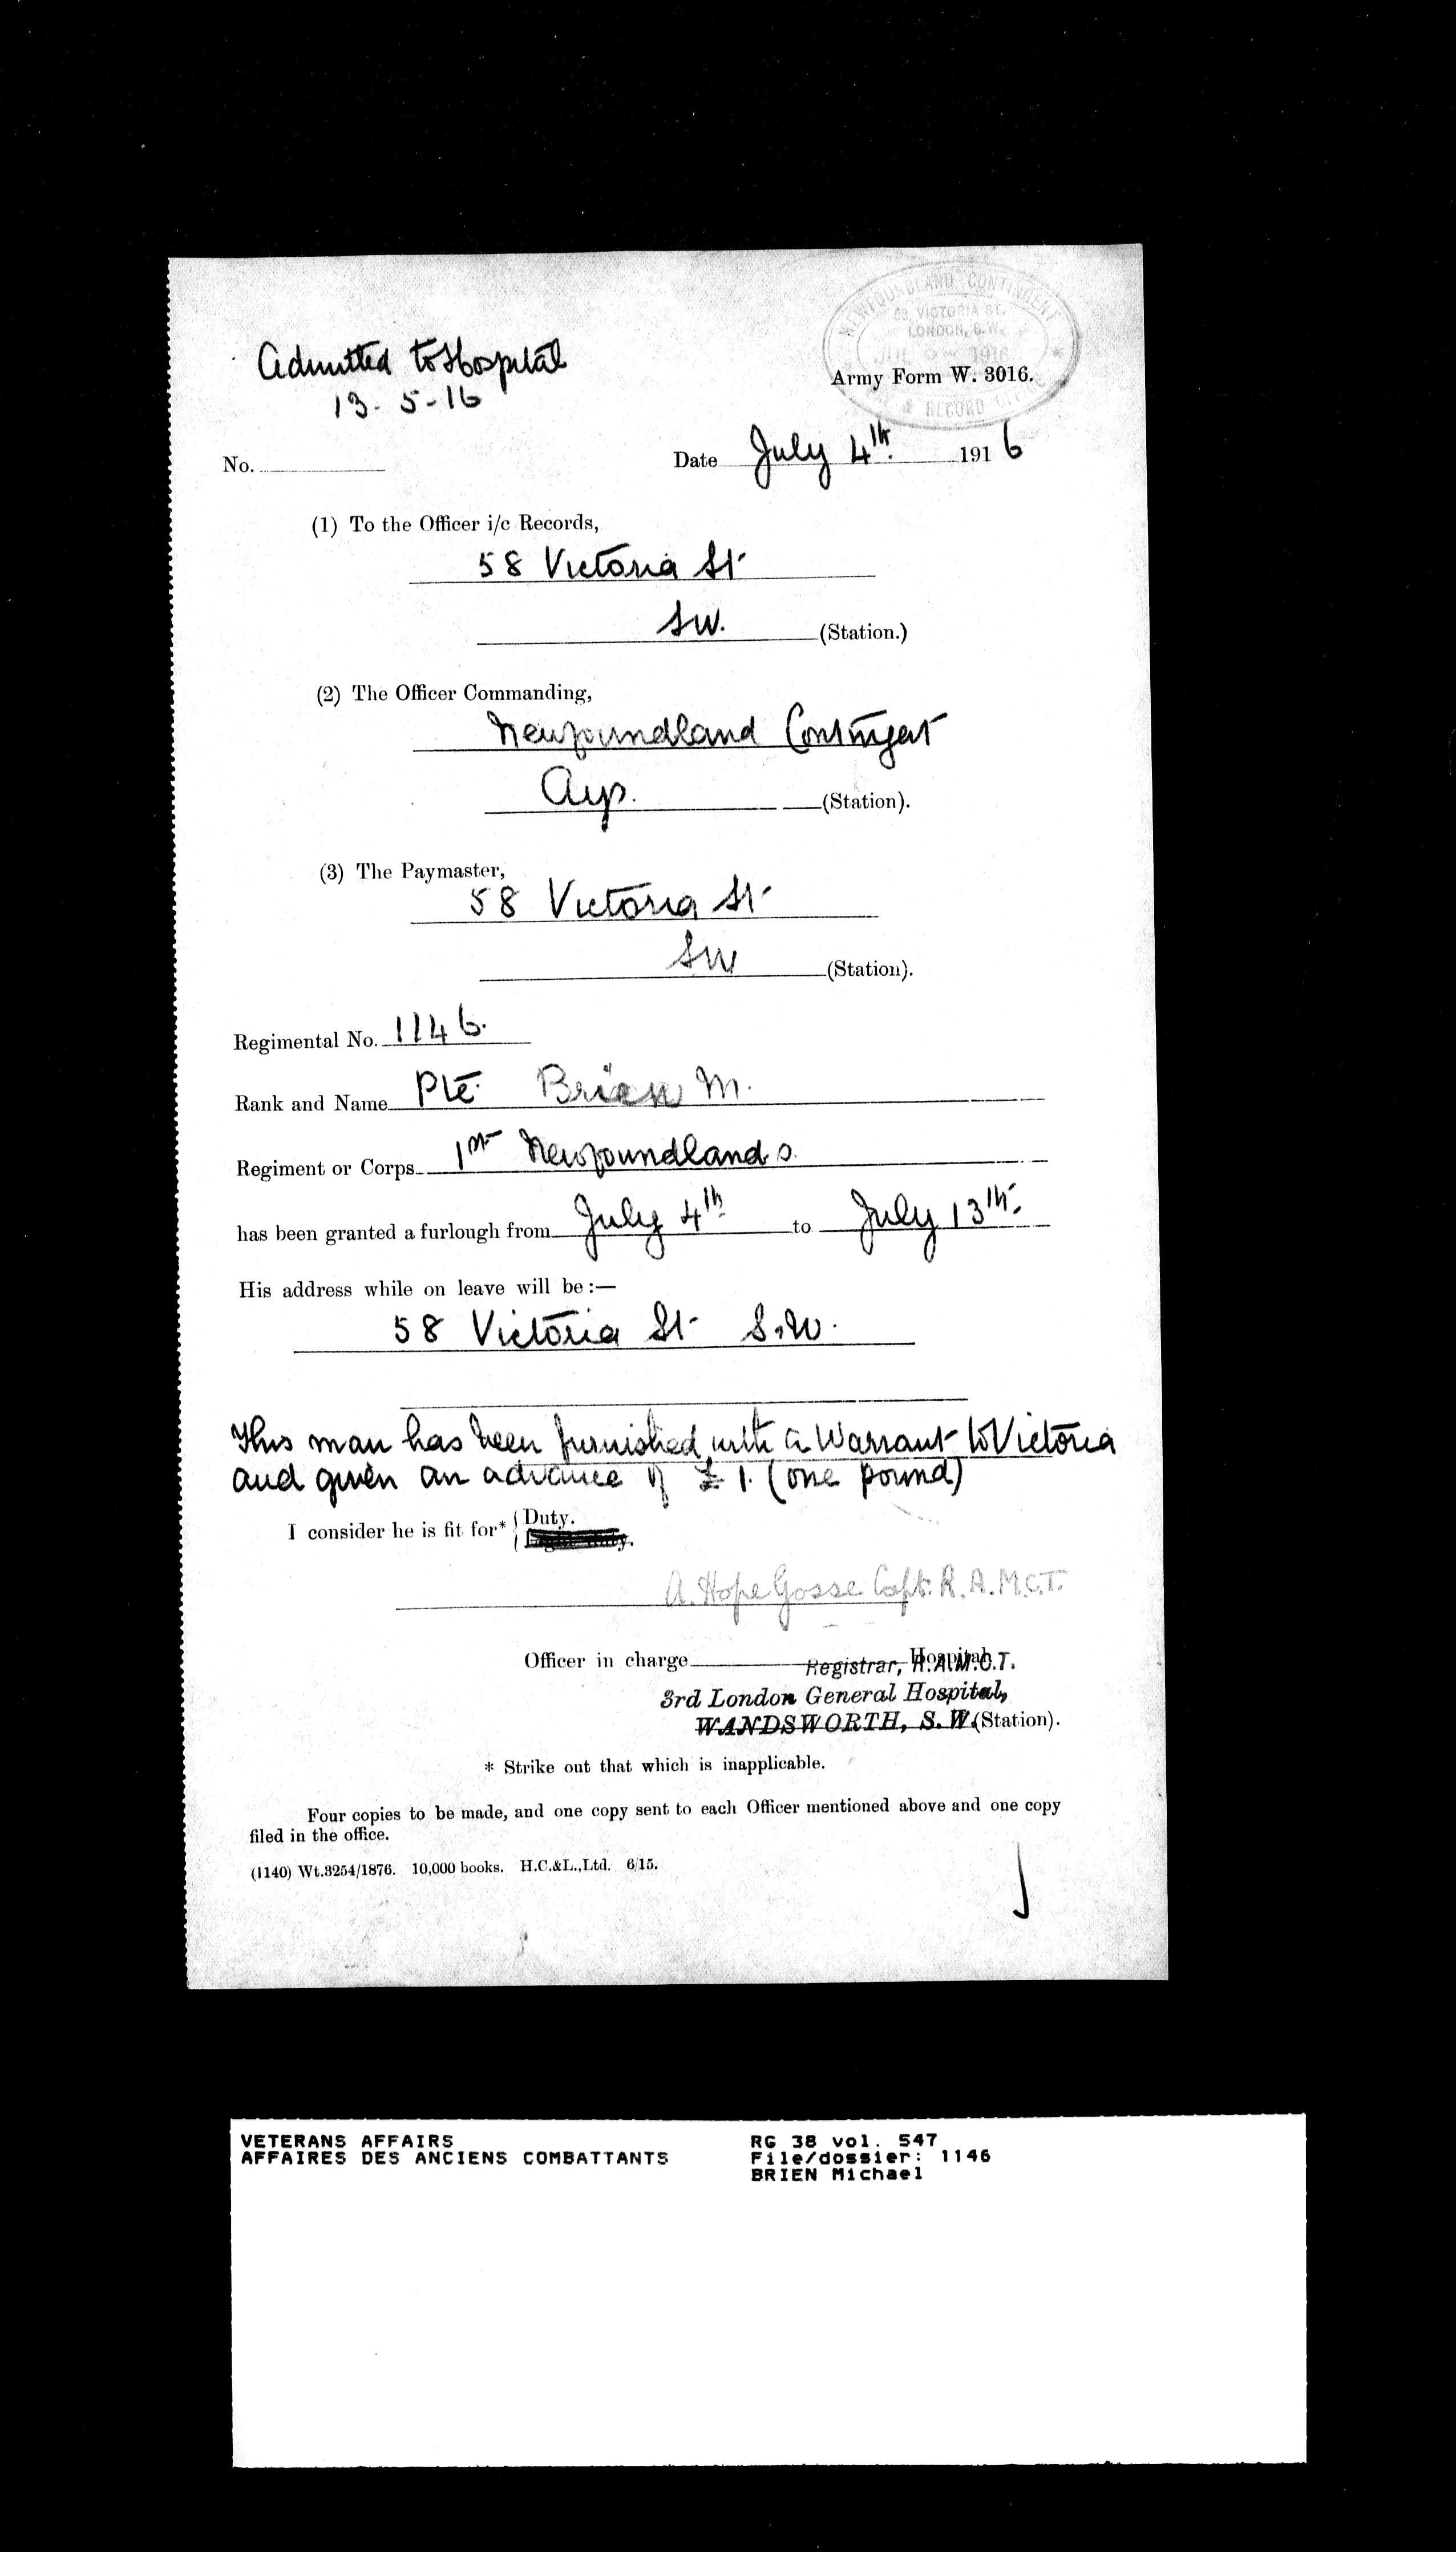 NEWFOUNDLAND CONTINGENT
58, VICTORIA ST.
LONDON, S.W.
1916
& RECORD
Admitted to Hospital
13-5-16
Army Form W. 3016.
No. Date July 4th 1916
(1) To the Officer i/c Records,
58 Victoria St
SW. (Station.)
(2) The Officer Commanding,
Newfoundland Contingent
Ayr. (Station).
(3) The Paymaster,
58 Victoria St
SW (Station).
Regimental No. 1146.
Rank and Name Pte Brien M.
Regiment or Corps 1st Newfoundlands.
has been granted a furlough from July 4th to July 13th.
His address while on leave will be :—
58 Victoria St S.W.
This man has been furnished with a Warrant to Victoria
and given an advance of £1. (one pound)
I consider he is fit for* Duty.
Light Duty.
A. Hope Gosse Capt. R.A.M.C.T.
Officer in charge Hospital.
Registrar, R.A.M.C.T.
3rd London General Hospital,
WANDSWORTH, S.W. (Station).
* Strike out that which is inapplicable.
Four copies to be made, and one copy sent to each Officer mentioned above and one copy
filed in the office.
(1140) Wt.3254/1876. 10,000 books. H.C.&L.,Ltd. 6/15.
VETERANS AFFAIRS RG 38 vol. 547
AFFAIRES DES ANCIENS COMBATTANTS File/dossier: 1146
BRIEN Michael